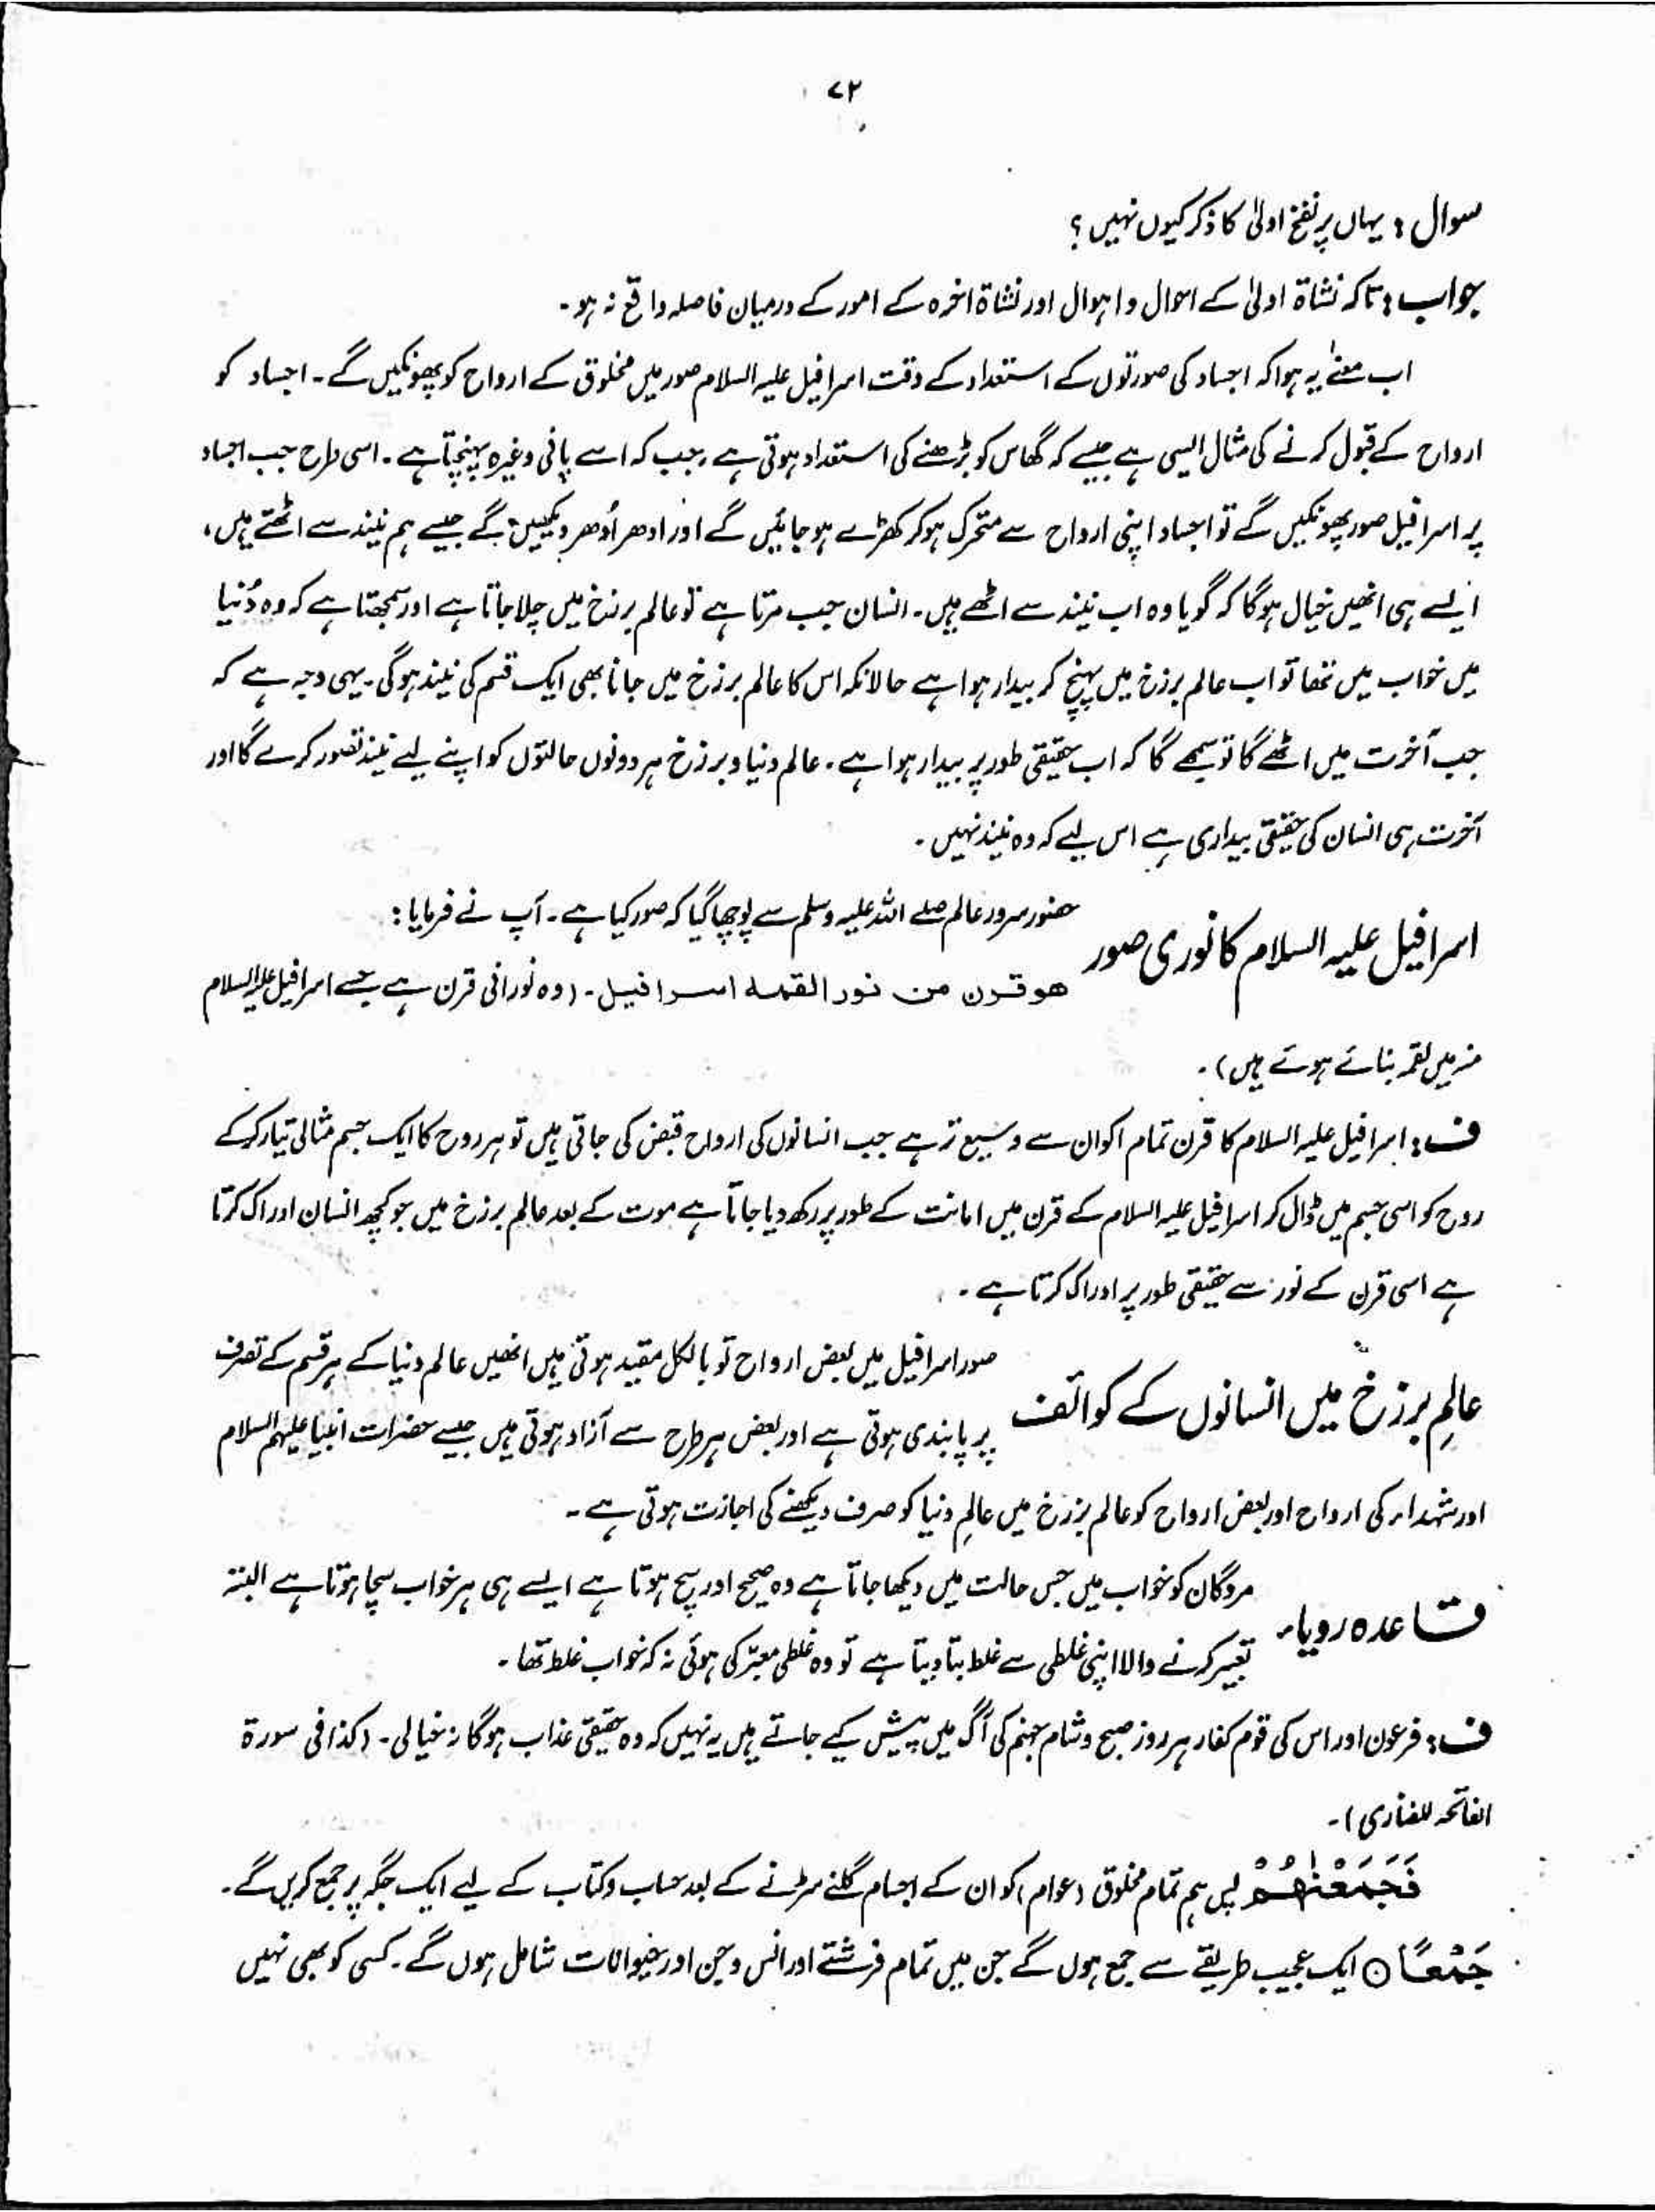 ۷۲
سوال : یہاں پر نفخ اولیٰ کا ذکر کیوں نہیں ؟
جواب : تاکہ نشاۃ اولیٰ کے احوال و اہوال اور نشاۃ اخرہ کے امور کے درمیان فاصلہ واقع نہ ہو۔
اب معنےٰ یہ ہوا کہ اجساد کی صورتوں کے استعداد کے وقت اسرافیل علیہ السلام صور میں مخلوق کے ارواح کو پھونکیں گے۔ اجساد کو
ارواح کے قبول کرنے کی مثال ایسی ہے جیسے کہ گھاس کو بڑھنے کی استعداد ہوتی ہے ، جب کہ اسے پانی وغیرہ پہنچتا ہے۔ اسی طرح جب اجساد
پر اسرافیل صور پھونکیں گے تو اجساد اپنی ارواح سے متحرک ہو کر کھڑے ہو جائیں گے اور ادھر اُدھر دیکھیں گے جیسے ہم نیند سے اٹھتے ہیں ،
ایسے ہی انھیں خیال ہوگا کہ گویا وہ اب نیند سے اٹھے ہیں۔ انسان جب مرتا ہے تو عالم برزخ میں چلا جاتا ہے اور سمجھتا ہے کہ وہ دُنیا
میں خواب میں تھا تو اب عالم برزخ میں پہنچ کر بیدار ہوا ہے حالانکہ اس کا عالم برزخ میں جانا بھی ایک قسم کی نیند ہوگی۔ یہی وجہ ہے کہ
جب آخرت میں اٹھے گا تو سمجھے گا کہ اب حقیقی طور پر بیدار ہوا ہے۔ عالم دنیا و برزخ ہر دونوں حالتوں کو اپنے لیے نیند تصور کرے گا اور
آخرت ہی انسان کی حقیقی بیداری ہے اس لیے کہ وہ نیند نہیں۔
اسرافیل علیہ السلام کا نوری صور
حضور سرور عالم صلے اللہ علیہ وسلم سے پوچھا گیا کہ صور کیا ہے۔ آپ نے فرمایا :
ھو قرن من نور القمہ اسرافیل۔ (وہ نورانی قرن ہے جسے اسرافیل علیہ السلام
منہ میں لقمہ بنائے ہوئے ہیں)۔
ف : اسرافیل علیہ السلام کا قرن تمام اکوان سے وسیع تر ہے جب انسانوں کی ارواح قبض کی جاتی ہیں تو ہر روح کا ایک جسم مثالی تیار کر کے
روح کو اسی جسم میں ڈال کر اسرافیل علیہ السلام کے قرن میں امانت کے طور پر رکھ دیا جاتا ہے موت کے بعد عالم برزخ میں جو کچھ انسان ادراک کرتا
ہے اسی قرن کے نور سے حقیقی طور پر ادراک کرتا ہے۔
عالمِ برزخ میں انسانوں کے کوائف
صور اسرافیل میں بعض ارواح تو بالکل مقید ہوتی ہیں انھیں عالم دنیا کے ہر قسم کے تصرف
پر پابندی ہوتی ہے اور بعض ہر طرح سے آزاد ہوتی ہیں جیسے حضرات انبیا علیہم السلام
اور شہداء کی ارواح اور بعض ارواح کو عالم برزخ میں عالمِ دنیا کو صرف دیکھنے کی اجازت ہوتی ہے۔
قاعدہ رویاء
مردگان کو خواب میں جس حالت میں دیکھا جاتا ہے وہ صحیح اور سچ ہوتا ہے ایسے ہی ہر خواب سچا ہوتا ہے البتہ
تعبیر کرنے والا اپنی غلطی سے غلط بتا دیتا ہے تو وہ غلطی معبّر کی ہوئی نہ کہ خواب غلط تھا۔
ف : فرعون اور اس کی قوم کفار ہر روز صبح و شام جہنم کی آگ میں پیش کیے جاتے ہیں یہ نہیں کہ وہ حقیقی عذاب ہوگا نہ خیالی۔ (کذا فی سورۃ
الفاتحہ للفناری)۔
فَجَمَعْنٰھُمْ پس ہم تمام مخلوق (عوام) کو ان کے اجسام گلنے سڑنے کے بعد حساب و کتاب کے لیے ایک جگہ پر جمع کریں گے۔
جَمْعًا ○ ایک عجیب طریقے سے جمع ہوں گے جن میں تمام فرشتے اور انس و جن اور حیوانات شامل ہوں گے۔ کسی کو بھی نہیں